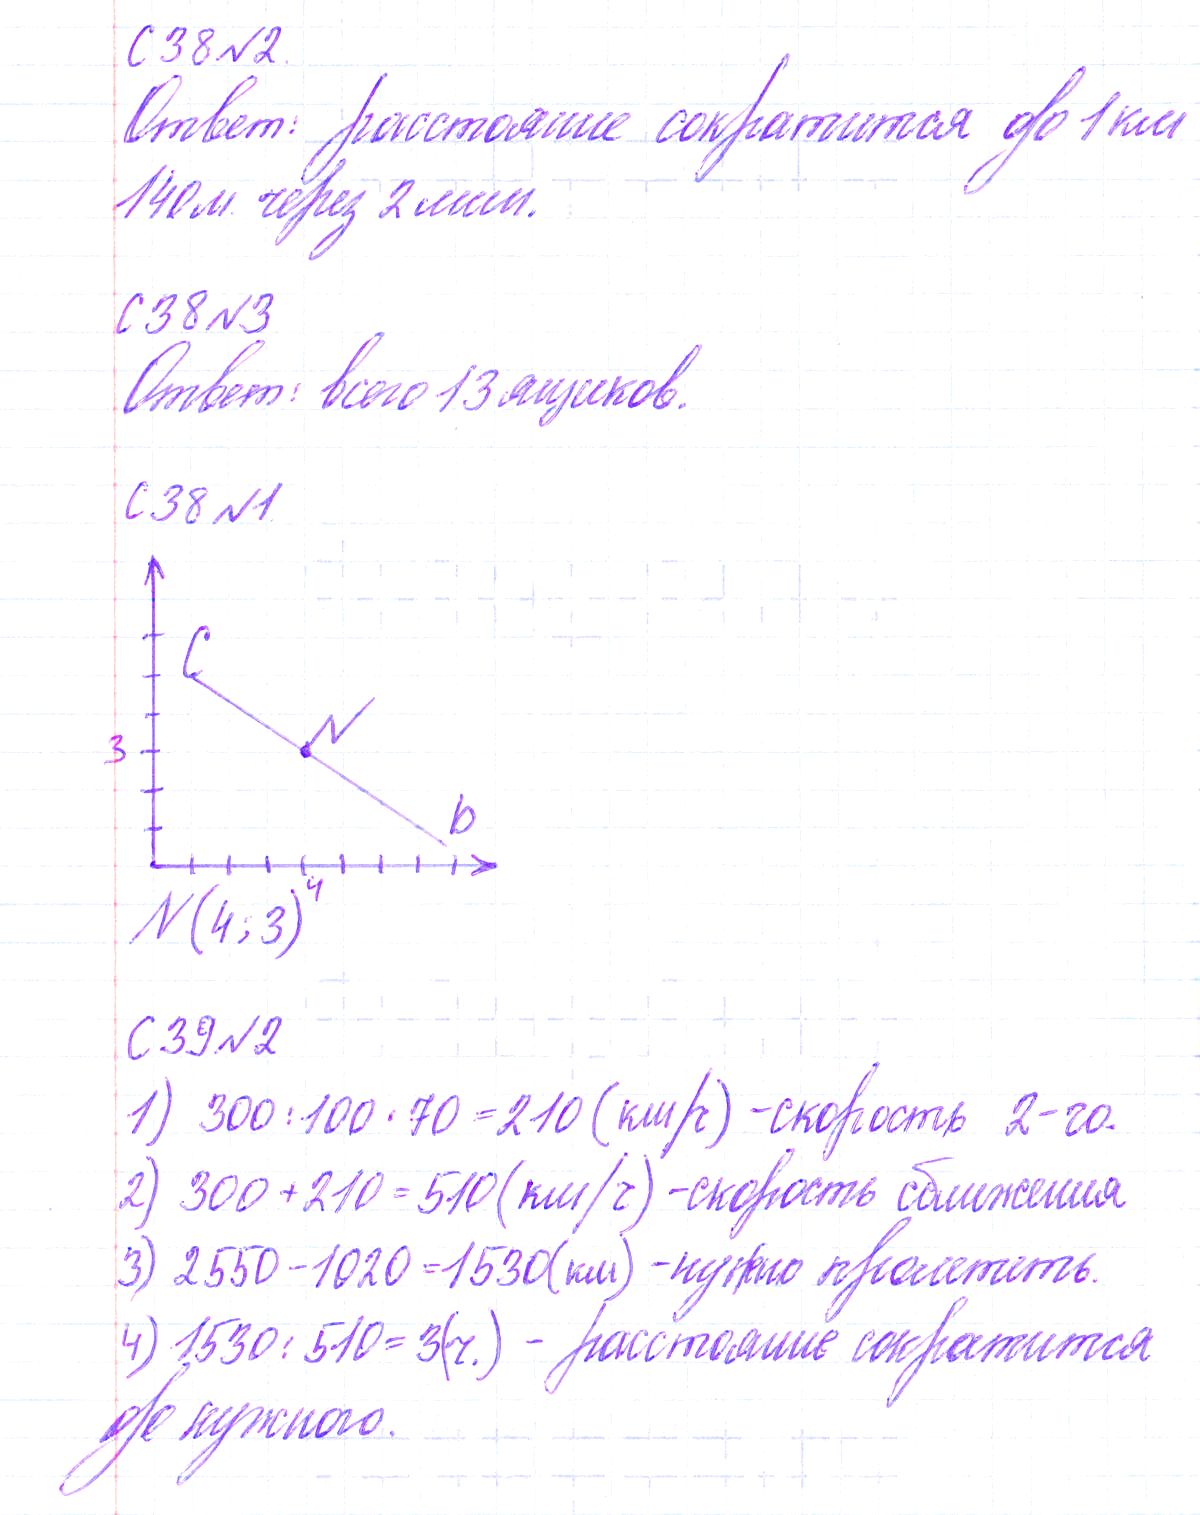 С 38 №2.
Ответ: расстояние сократится до 1 км
140 м. через 2 мин.
С 38 №3
Ответ: всего 13 ящиков.
С 38 №1
C
N
3
D
4
N(4;3)
С 39 №2
1) 300:100·70=210(км/ч)-скорость 2-го.
2) 300+210=510(км/ч)-скорость сближения
3) 2550-1020=1530(км)-нужно пролететь.
4) 1530:510=3(ч.) - расстояние сократится
до нужного.